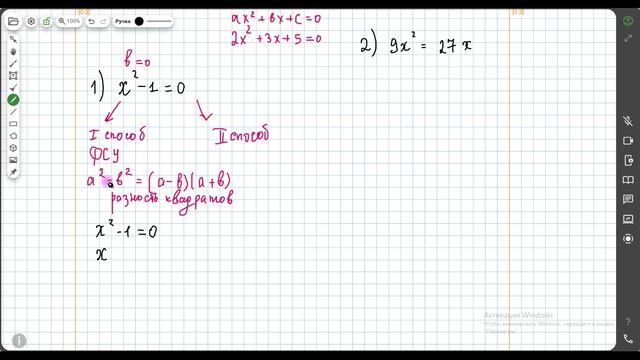 Ручка
100%
ax² + bx + c = 0
2x² + 3x + 5 = 0
2) 9x² = 27x
b = 0
1) x² - 1 = 0
I способ
II способ
ФСУ
a² - b² = (a - b)(a + b)
разность квадратов
x² - 1 = 0
x
Активация Windows
Чтобы активировать Windows, перейдите в раздел
"Параметры".